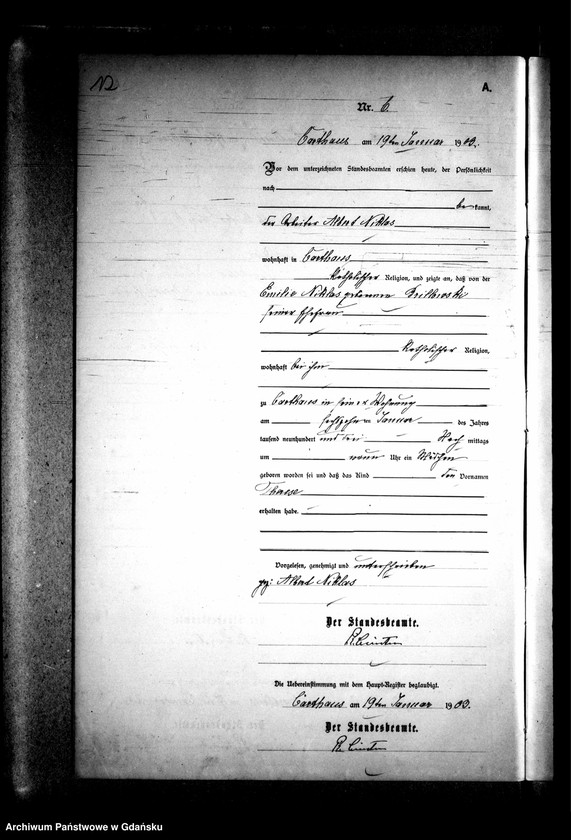 12
A.
Nr. 6.
Carthaus am 19ten Januar 1903.
Vor dem unterzeichneten Standesbeamten erschien heute, der Persönlichkeit
nach
be kannt,
der Arbeiter Albert Niklas
wohnhaft in Carthaus
katholischer Religion, und zeigte an, daß von der
Emilie Niklas geborenen
seiner Ehefrau
katholischer Religion,
wohnhaft bei ihm
zu Carthaus in seiner Wohnung
am sechszehnten Januar des Jahres
tausend neunhundert und drei Nach mittags
um neun Uhr ein Mädchen
geboren worden sei und daß das Kind den Vornamen
erhalten habe.
Vorgelesen, genehmigt und unterschrieben
gez: Albert Niklas
Der Standesbeamte.
Die Uebereinstimmung mit dem Haupt-Register beglaubigt.
Carthaus am 19ten Januar 1903.
Der Standesbeamte.
Archiwum Państwowe w Gdańsku